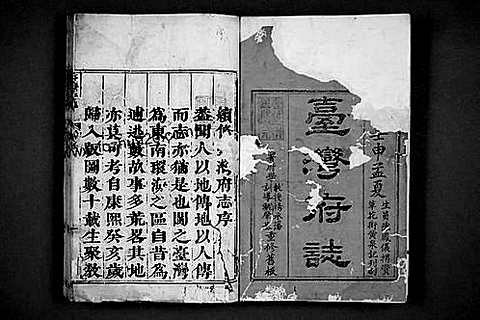 壬申孟夏
臺灣府誌
重修舊板
續修 灣府志序
蓋聞人以地傳地以人傳
而志亦猶是也閩之臺灣
為東南環海之區自昔為
逋逃藪故事多荒畧其地
亦莫可考自康熙癸亥歲
歸入版圖數十載生聚教